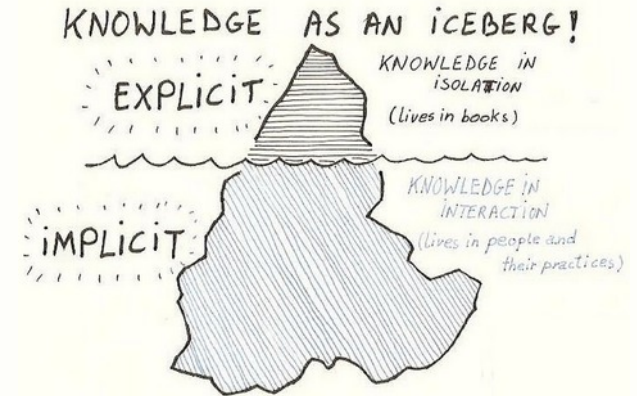 KNOWLEDGE AS AN iCEBERG!
EXPLiCiT
KNOWLEDGE iN
iSOLATiON
(lives in books)
iMPLiCiT
KNOWLEDGE iN
iNTERACTiON
(lives in people and
their practices)